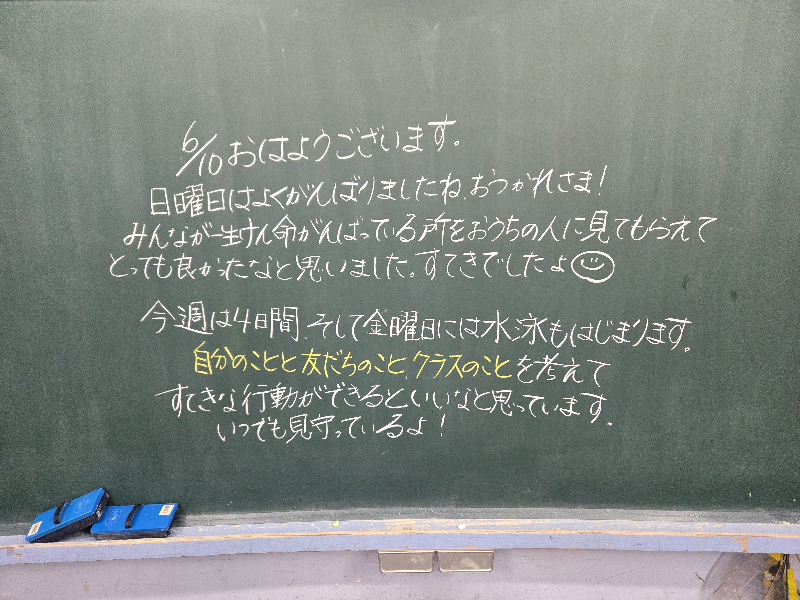 6/10 おはようございます。
日曜日はよくがんばりましたね、おつかれさま!
みんなが一生けん命がんばっている所をおうちの人に見てもらえて
とっても良かったなと思いました。すてきでしたよ☺
今週は4日間、そして金曜日には水泳もはじまります。
自分のことと友だちのこと、クラスのことを考えて
すてきな行動ができるといいなと思っています。
いつでも見守っているよ!